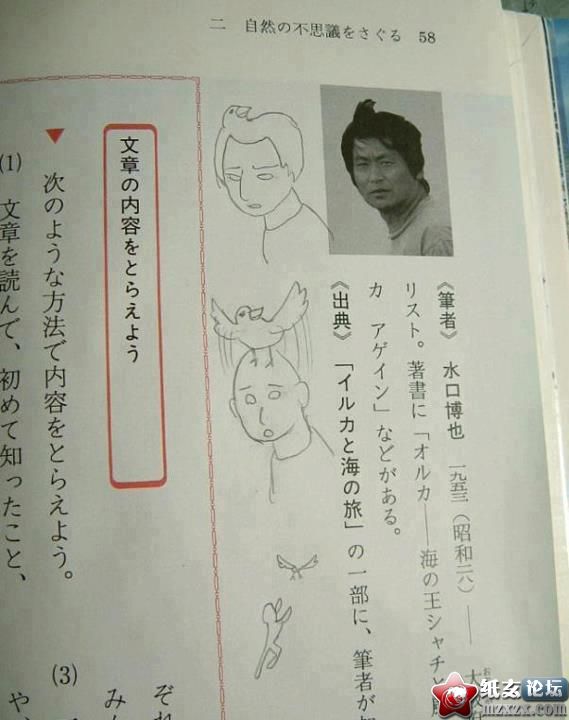 二 自然の不思議をさぐる 58
《筆者》 水口博也 一九五三(昭和二八) ―― 大
リスト。著書に「オルカ――海の王シャチと
カ アゲイン」などがある。
《出典》 「イルカと海の旅」の一部に、筆者が
文章の内容をとらえよう
▼ 次のような方法で内容をとらえよう。
(1) 文章を読んで、初めて知ったこと、
(3)
ぞれ
み
や、
纸友论坛
mzxzx.com